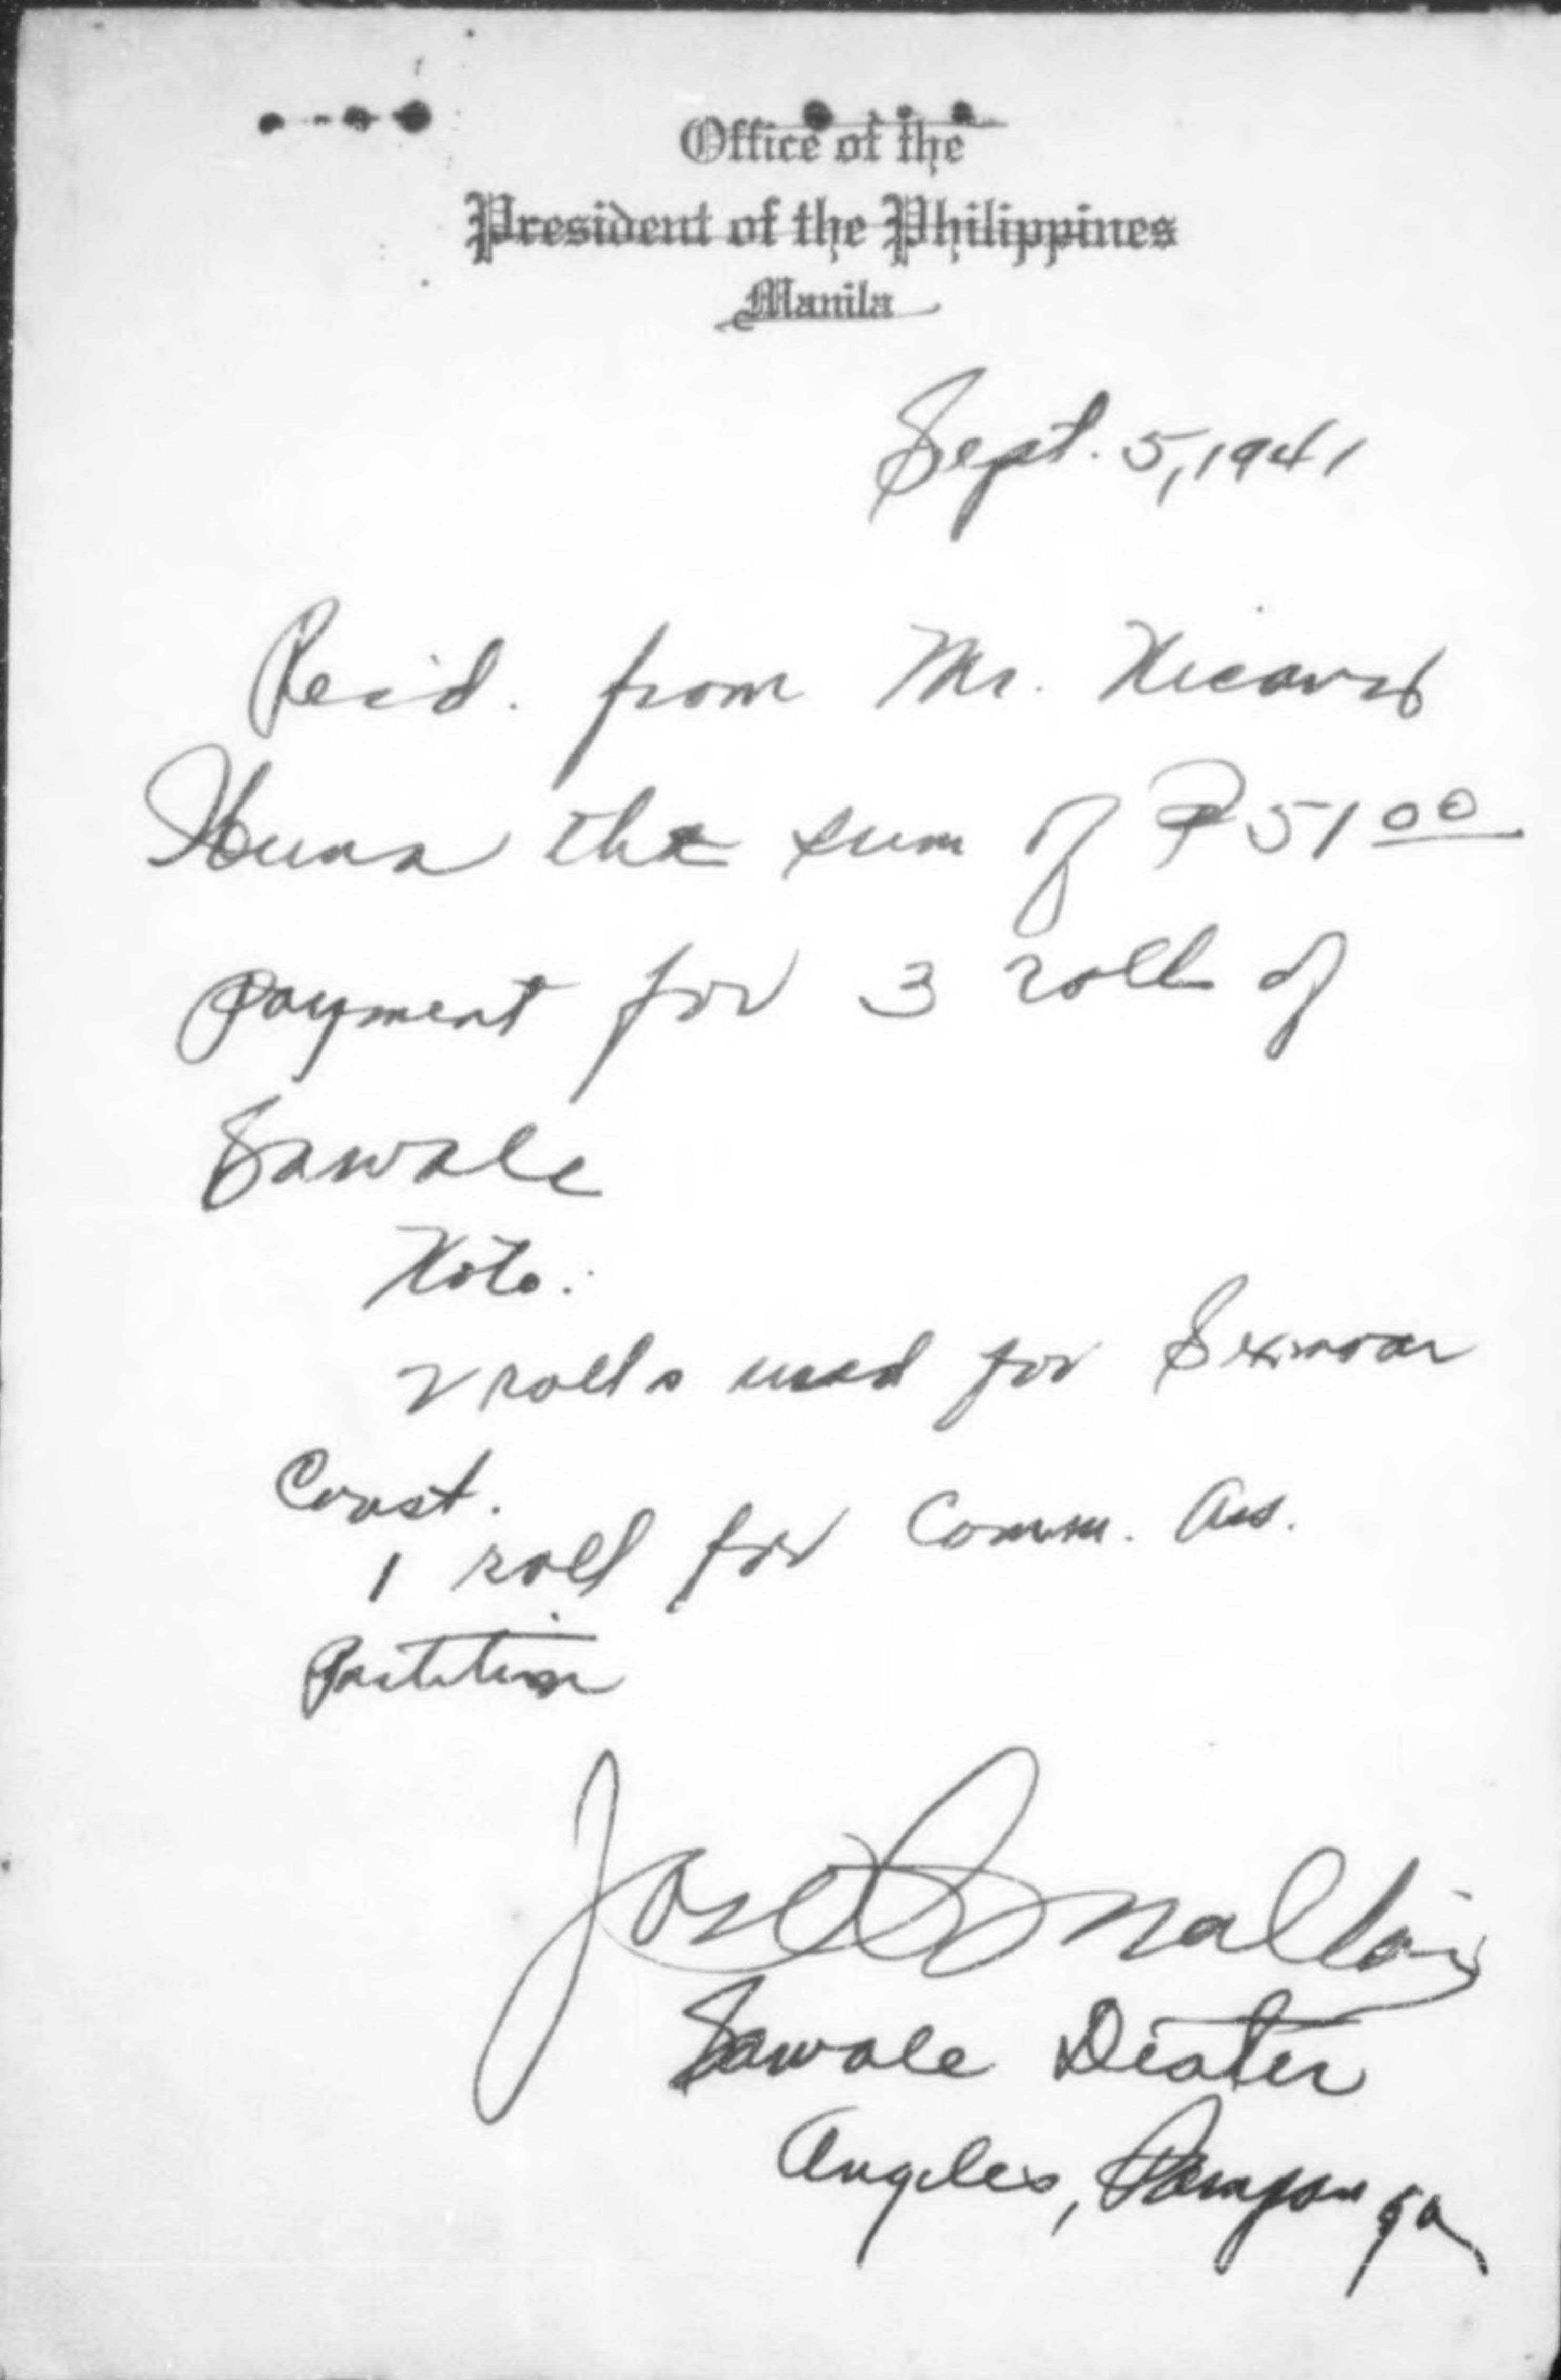 Office of the
President of the Philippines
Manila
Sept. 5, 1941
Rec'd. from Mr. Nicanor
the sum of ₱51 00
payment for 3 roll of
Sawale
Note:
2 rolls used for Sexmoan
Const.
1 roll for Comm. Ass.
Partition
Jose
Sawale Dealer
Angeles, Pampanga